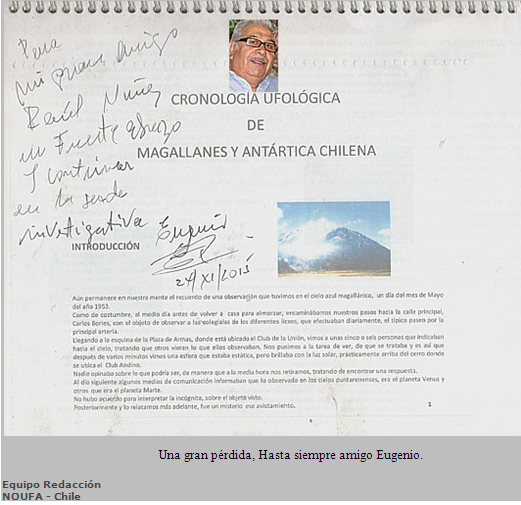 Para
mi gran amigo
Raúl Núñez
un Fuerte abrazo
y continuar
en la senda
investigativa Eugenio
24/XI/2015
CRONOLOGÍA UFOLÓGICA
DE
MAGALLANES Y ANTÁRTICA CHILENA
INTRODUCCIÓN
Aún permanece en nuestra mente el recuerdo de una observación que tuvimos en el cielo azul magallánico, un día del mes de Mayo
del año 1953.
Como de costumbre, al medio día antes de volver a casa para almorzar, encaminábamos nuestros pasos hacia la calle principal,
Carlos Bories, con el objeto de observar a las colegialas de los diferentes liceos, que efectuaban diariamente, el típico paseo por la
principal arteria.
Llegando a la esquina de la Plaza de Armas, donde está ubicado el Club de la Unión, vimos a unas cinco o seis personas que indicaban
hacia el cielo, tratando que otros vieran lo que ellos observaban, Nos pusimos a la tarea de ver, de que se trataba y es así que
después de varios minutos vimos una esfera que estaba estática, pero brillaba con la luz solar, prácticamente arriba del cerro donde
se ubica el Club Andino.
Nadie opinaba sobre lo que podría ser, de manera que a la media hora nos retiramos, tratando de encontrar una respuesta.
Al día siguiente algunos medios de comunicación informaban que lo observado en los cielos puntarenenses, era el planeta Venus y
otros que era el planeta Marte.
No hubo acuerdo para interpretar la incógnita, sobre el objeto visto.
Posteriormente y lo relatamos más adelante, fue un misterio ese avistamiento.
1
Una gran pérdida, Hasta siempre amigo Eugenio.
Equipo Redacción
NOUFA - Chile